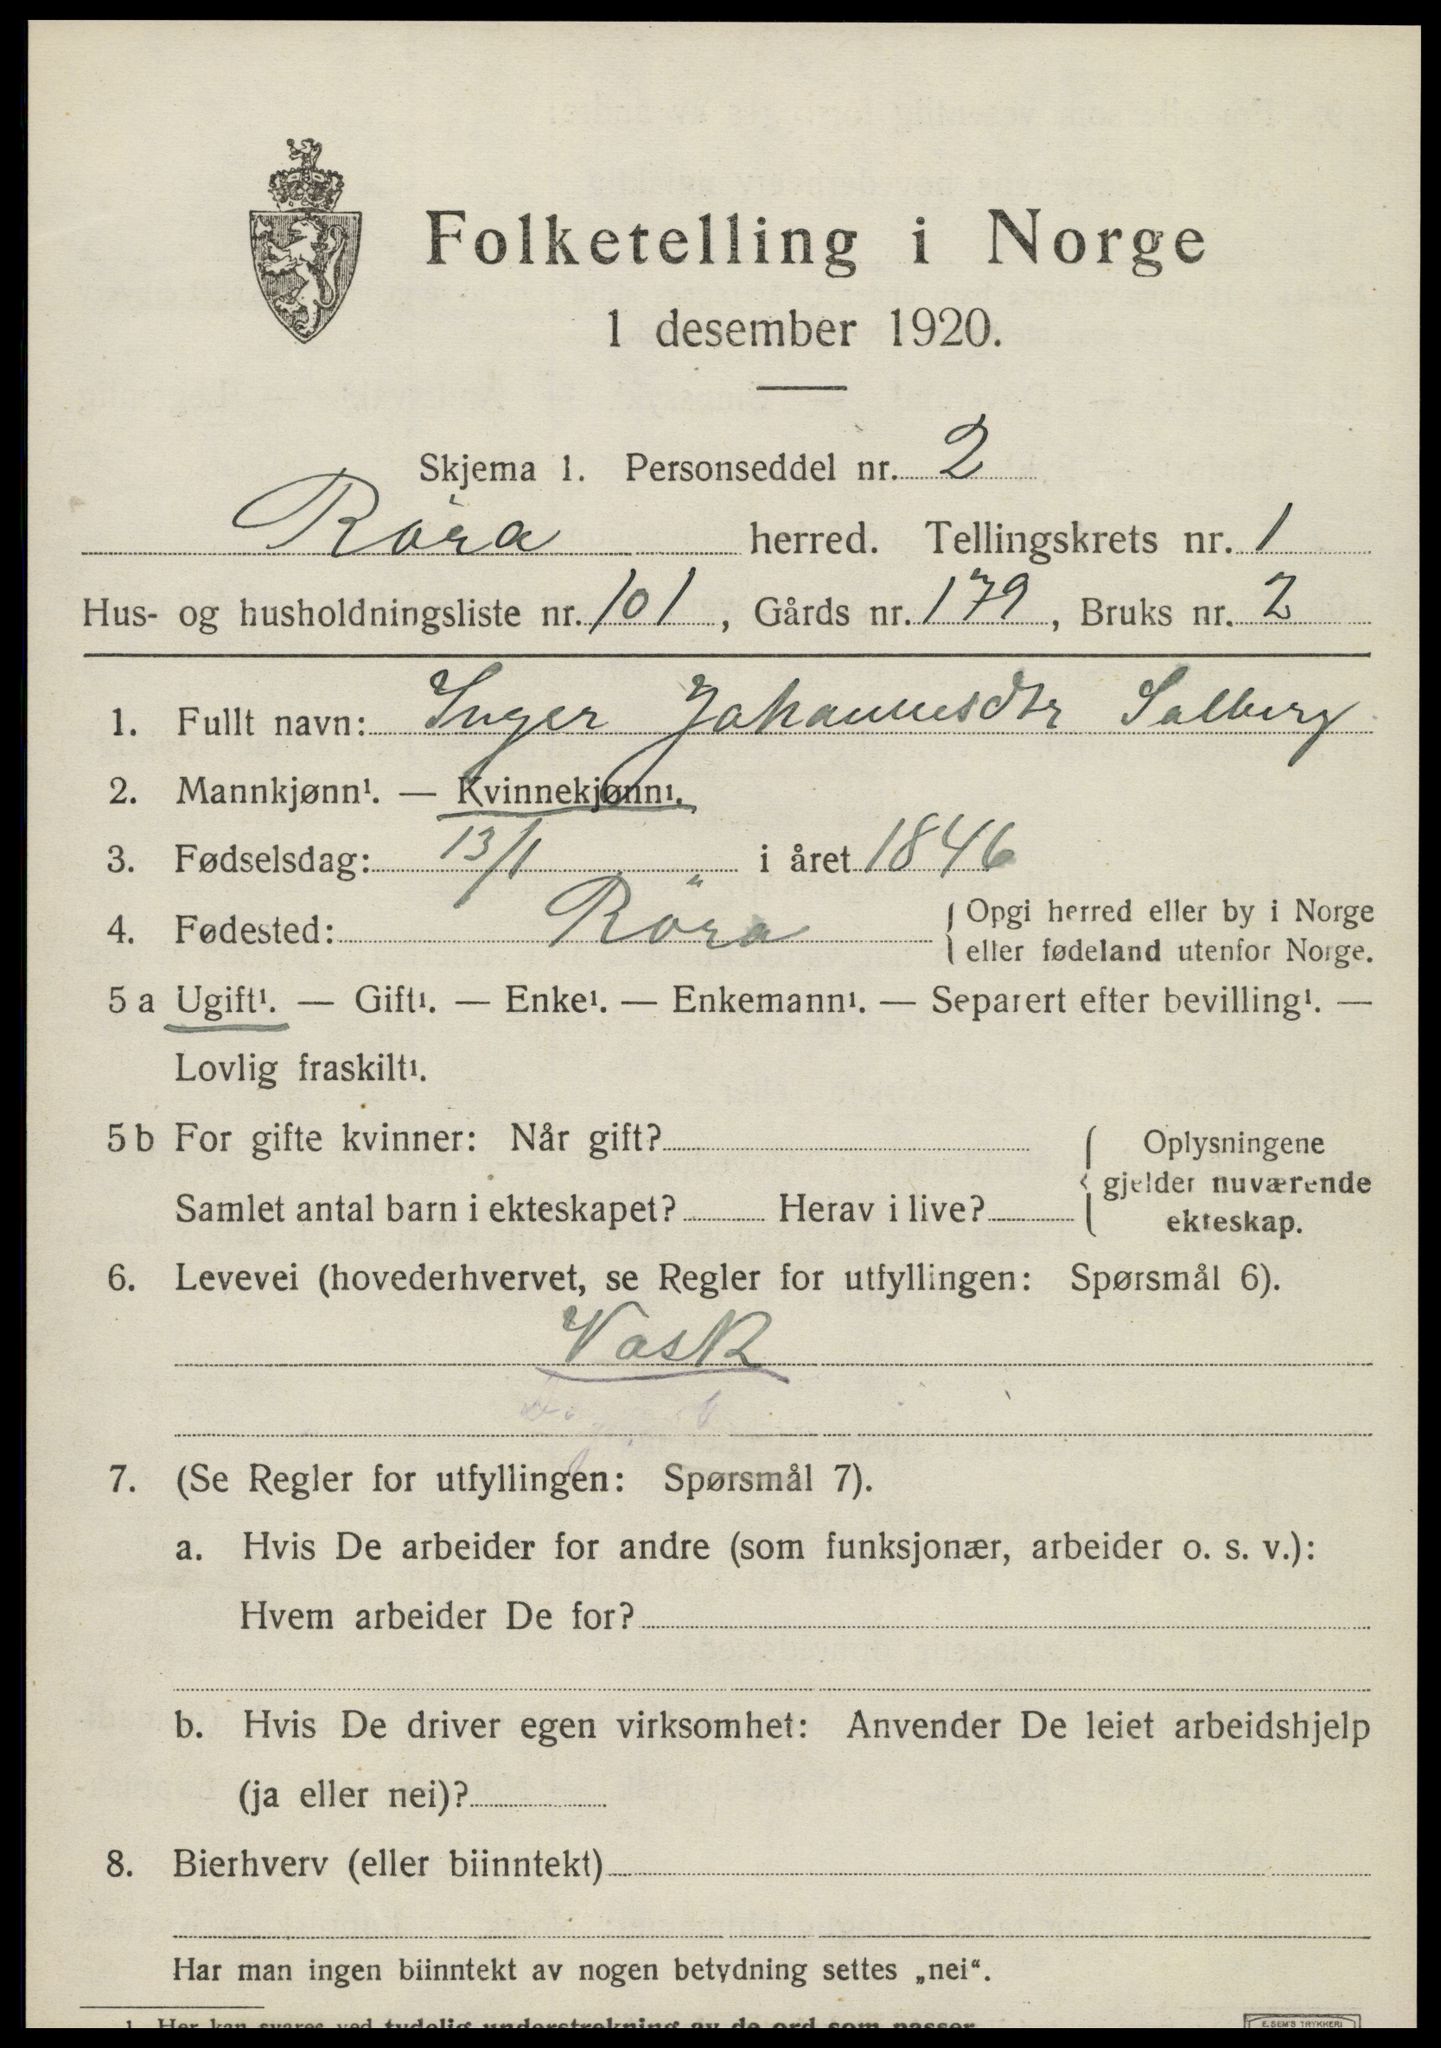 Folketelling i Norge
1 desember 1920.
Skjema 1. Personseddel nr. 2
Röra herred. Tellingskrets nr. 1
Hus- og husholdningsliste nr. 101, Gårds nr. 179, Bruks nr. 2
1. Fullt navn: Inger Johannesdtr Salberg
2. Mannkjønn¹. — Kvinnekjønn¹.
3. Fødselsdag: 13/1 i året 1846
4. Fødested: Röra { Opgi herred eller by i Norge
eller fødeland utenfor Norge.
5 a Ugift¹. — Gift¹. — Enke¹. — Enkemann¹. — Separert efter bevilling¹. —
Lovlig fraskilt¹.
5 b For gifte kvinner: Når gift? { Oplysningene
gjelder nuværende
Samlet antal barn i ekteskapet? Herav i live? ekteskap.
6. Levevei (hovederhvervet, se Regler for utfyllingen: Spørsmål 6).
Vask
7. (Se Regler for utfyllingen: Spørsmål 7).
a. Hvis De arbeider for andre (som funksjonær, arbeider o. s. v.):
Hvem arbeider De for?
b. Hvis De driver egen virksomhet: Anvender De leiet arbeidshjelp
(ja eller nei)?
8. Bierhverv (eller biinntekt)
Har man ingen biinntekt av nogen betydning settes „nei“.
1 Her kan svares ved tydelig understrekning av de ord som passer.
E. SEM'S TRYKKERI